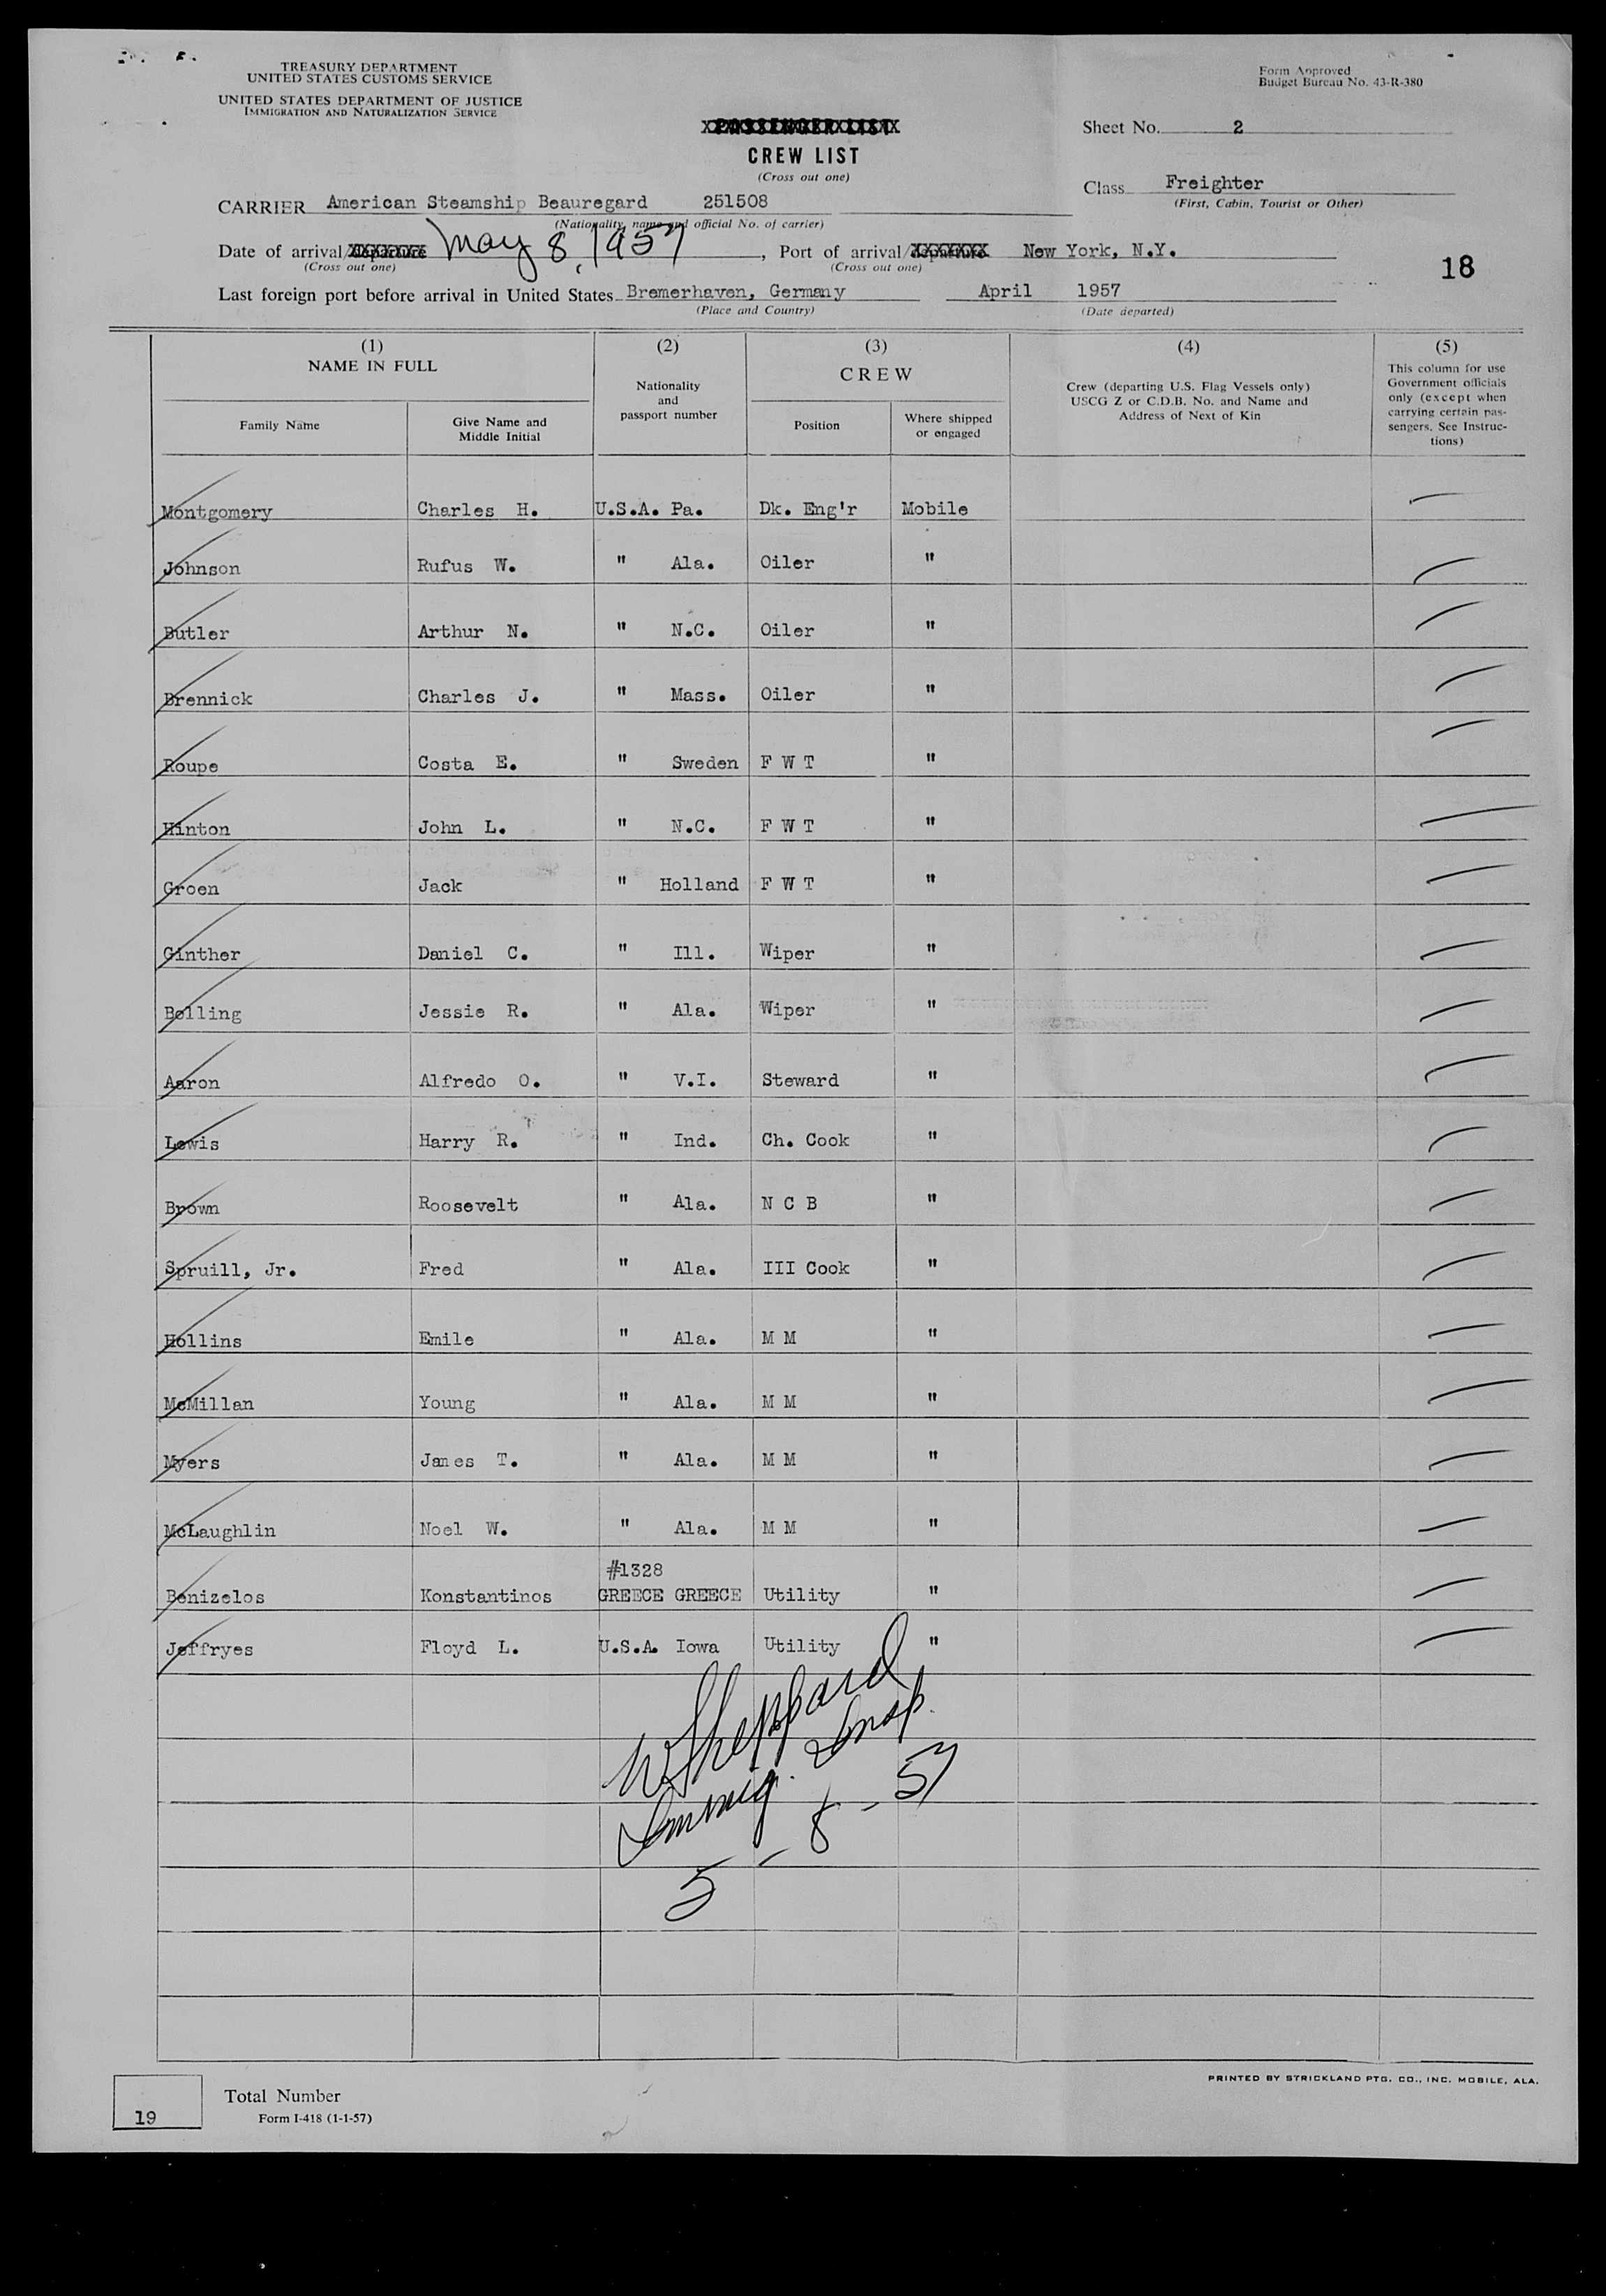 TREASURY DEPARTMENT
UNITED STATES CUSTOMS SERVICE
UNITED STATES DEPARTMENT OF JUSTICE
IMMIGRATION AND NATURALIZATION SERVICE
Form Approved
Budget Bureau No. 43-R-380
PASSENGER LIST
CREW LIST
(Cross out one)
Sheet No. 2
Class Freighter
(First, Cabin, Tourist or Other)
CARRIER American Steamship Beauregard 251508
(Nationality, name and official No. of carrier)
Date of arrival/departure May 8, 1957, Port of arrival/departure New York, N.Y.
(Cross out one) (Cross out one)
18
Last foreign port before arrival in United States Bremerhaven, Germany April 1957
(Place and Country) (Date departed)
(1) (2) (3) (4) (5)
NAME IN FULL
Family Name
Give Name and
Middle Initial
Nationality
and
passport number
CREW
Position
Where shipped
or engaged
Crew (departing U.S. Flag Vessels only)
USCG Z or C.D.B. No. and Name and
Address of Next of Kin
This column for use
Government officials
only (except when
carrying certain pas-
sengers. See Instruc-
tions)
Montgomery Charles H. U.S.A. Pa. Dk. Eng'r Mobile
Johnson Rufus W. " Ala. Oiler "
Butler Arthur N. " N.C. Oiler "
Brennick Charles J. " Mass. Oiler "
Roupe Costa E. " Sweden F W T "
Hinton John L. " N.C. F W T "
Groen Jack " Holland F W T "
Ginther Daniel C. " Ill. Wiper "
Bolling Jessie R. " Ala. Wiper "
Aaron Alfredo O. " V.I. Steward "
Lewis Harry R. " Ind. Ch. Cook "
Brown Roosevelt " Ala. N C B "
Spruill, Jr. Fred " Ala. III Cook "
Hollins Emile " Ala. M M "
McMillan Young " Ala. M M "
Myers James T. " Ala. M M "
McLaughlin Noel W. " Ala. M M "
#1328
Benizelos Konstantinos GREECE GREECE Utility "
Jeffryes Floyd L. U.S.A. Iowa Utility "
W Sheppard
Immig. Insp.
5-8-57
PRINTED BY STRICKLAND PTG. CO., INC. MOBILE, ALA.
19
Total Number
Form I-418 (1-1-57)